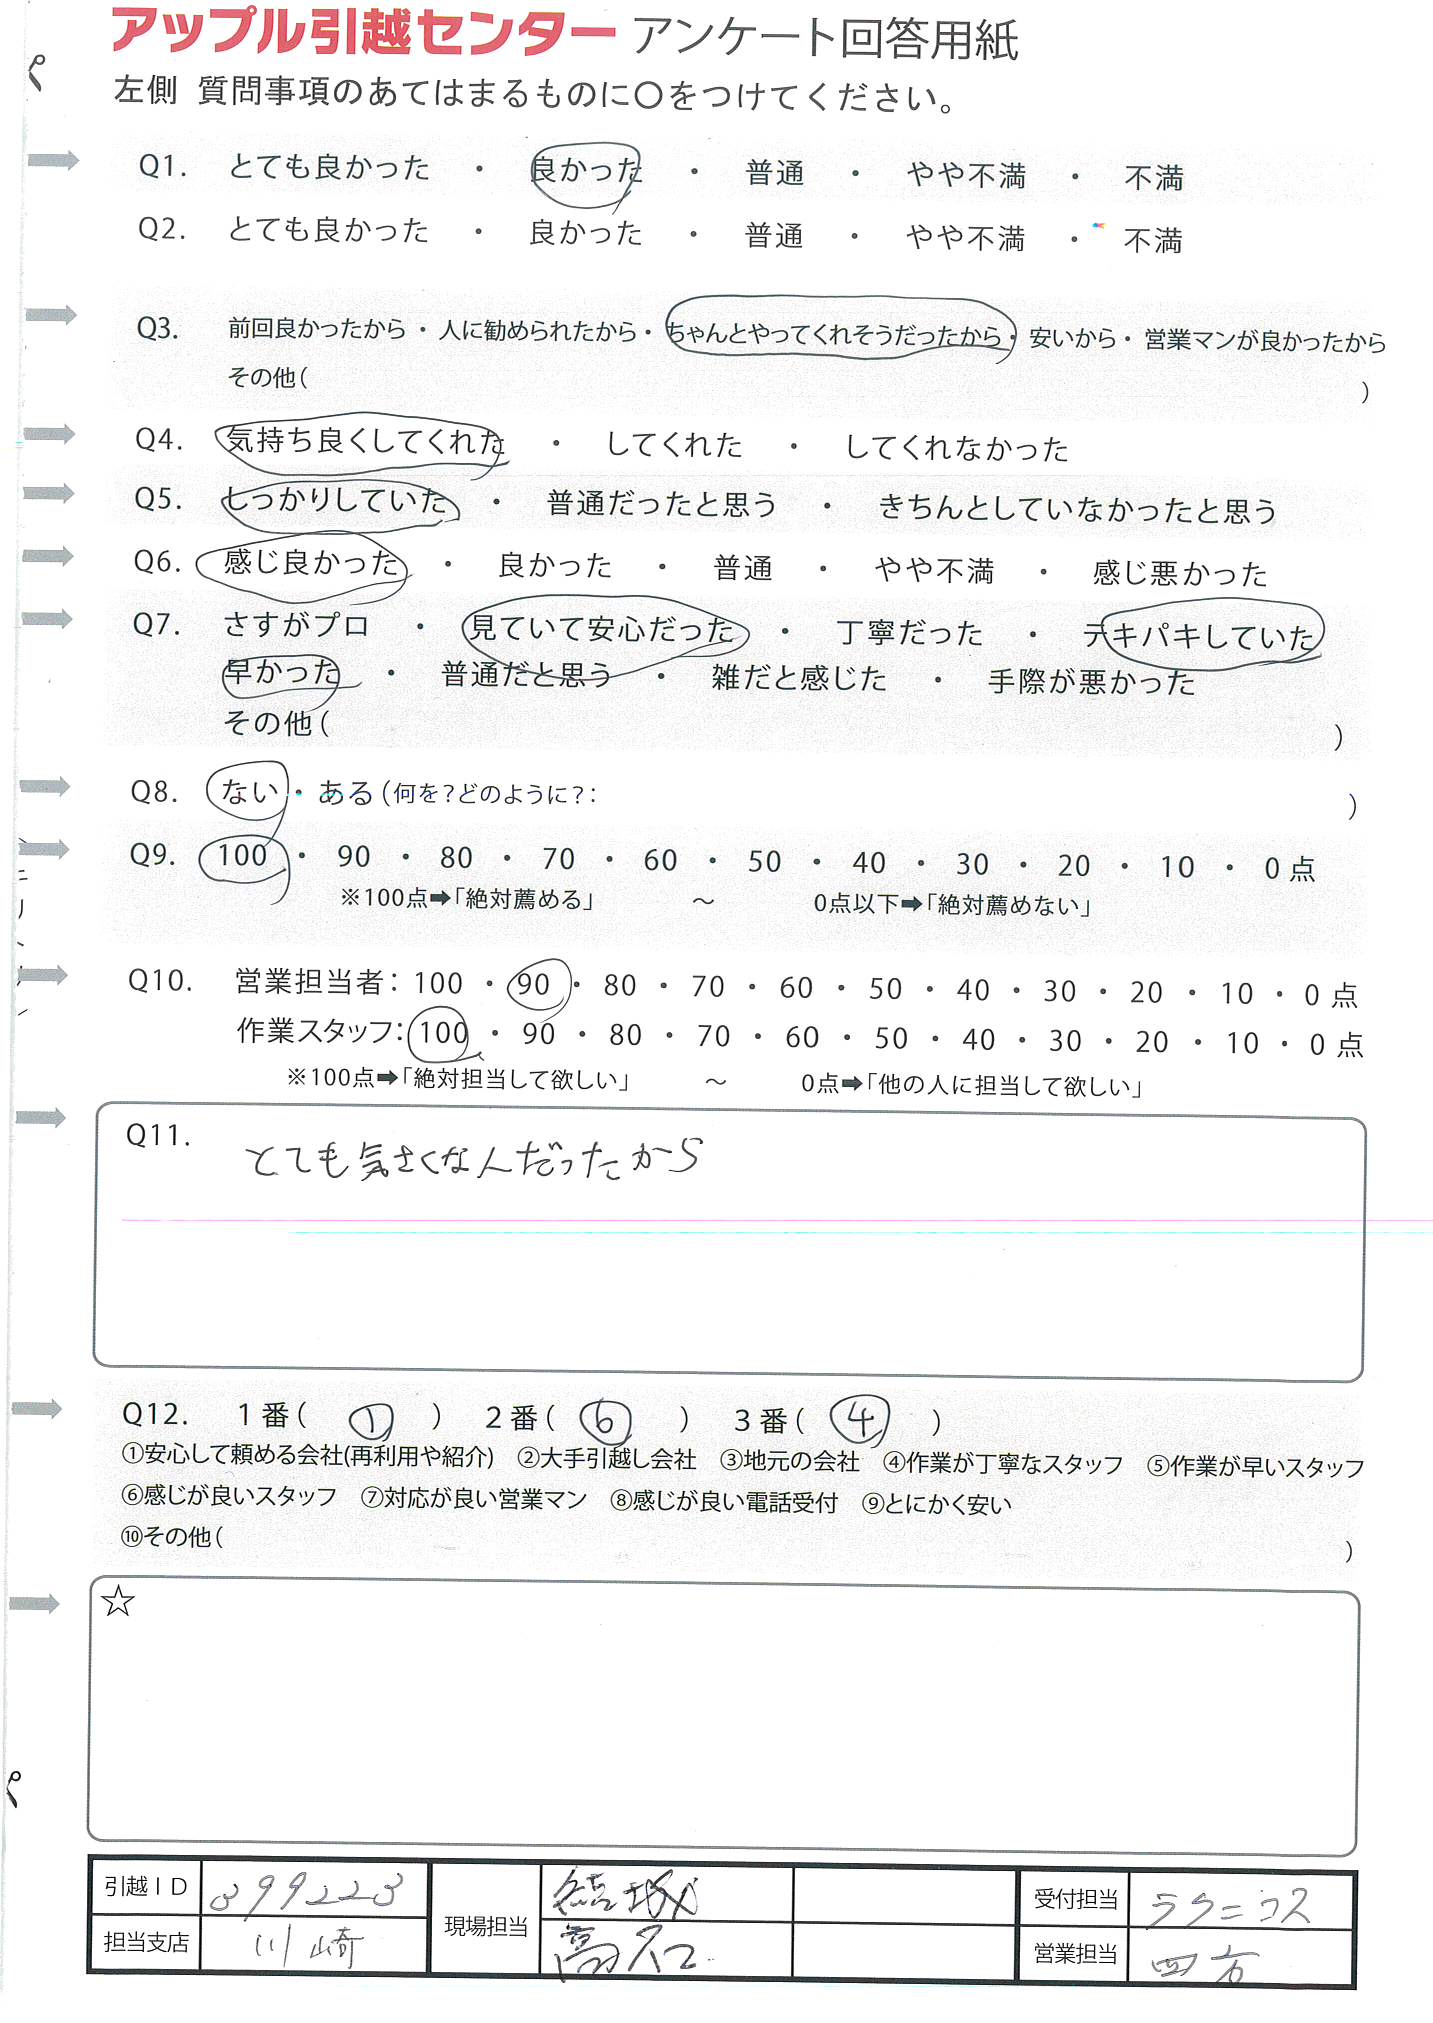 アップル引越センター アンケート回答用紙
左側 質問事項のあてはまるものに〇をつけてください。
Q1. とても良かった ・ 良かった ・ 普通 ・ やや不満 ・ 不満
Q2. とても良かった ・ 良かった ・ 普通 ・ やや不満 ・ 不満
Q3. 前回良かったから・人に勧められたから・ちゃんとやってくれそうだったから・安いから・営業マンが良かったから
その他( )
Q4. 気持ち良くしてくれた ・ してくれた ・ してくれなかった
Q5. しっかりしていた ・ 普通だったと思う ・ きちんとしていなかったと思う
Q6. 感じ良かった ・ 良かった ・ 普通 ・ やや不満 ・ 感じ悪かった
Q7. さすがプロ ・ 見ていて安心だった ・ 丁寧だった ・ テキパキしていた
早かった ・ 普通だと思う ・ 雑だと感じた ・ 手際が悪かった
その他( )
Q8. ない・ある(何を?どのように?: )
Q9. 100 ・ 90 ・ 80 ・ 70 ・ 60 ・ 50 ・ 40 ・ 30 ・ 20 ・ 10 ・ 0点
※100点➡「絶対薦める」 ～ 0点以下➡「絶対薦めない」
Q10. 営業担当者: 100 ・ 90 ・ 80 ・ 70 ・ 60 ・ 50 ・ 40 ・ 30 ・ 20 ・ 10 ・ 0点
作業スタッフ: 100 ・ 90 ・ 80 ・ 70 ・ 60 ・ 50 ・ 40 ・ 30 ・ 20 ・ 10 ・ 0点
※100点➡「絶対担当して欲しい」 ～ 0点➡「他の人に担当して欲しい」
Q11. とても気さくなんだったから
Q12. 1番( ① ) 2番( ⑥ ) 3番( ④ )
①安心して頼める会社(再利用や紹介) ②大手引越し会社 ③地元の会社 ④作業が丁寧なスタッフ ⑤作業が早いスタッフ
⑥感じが良いスタッフ ⑦対応が良い営業マン ⑧感じが良い電話受付 ⑨とにかく安い
⑩その他( )
☆
引越ID 399223 現場担当 結城 受付担当 ラクニコス
担当支店 川崎 高石 営業担当 四方